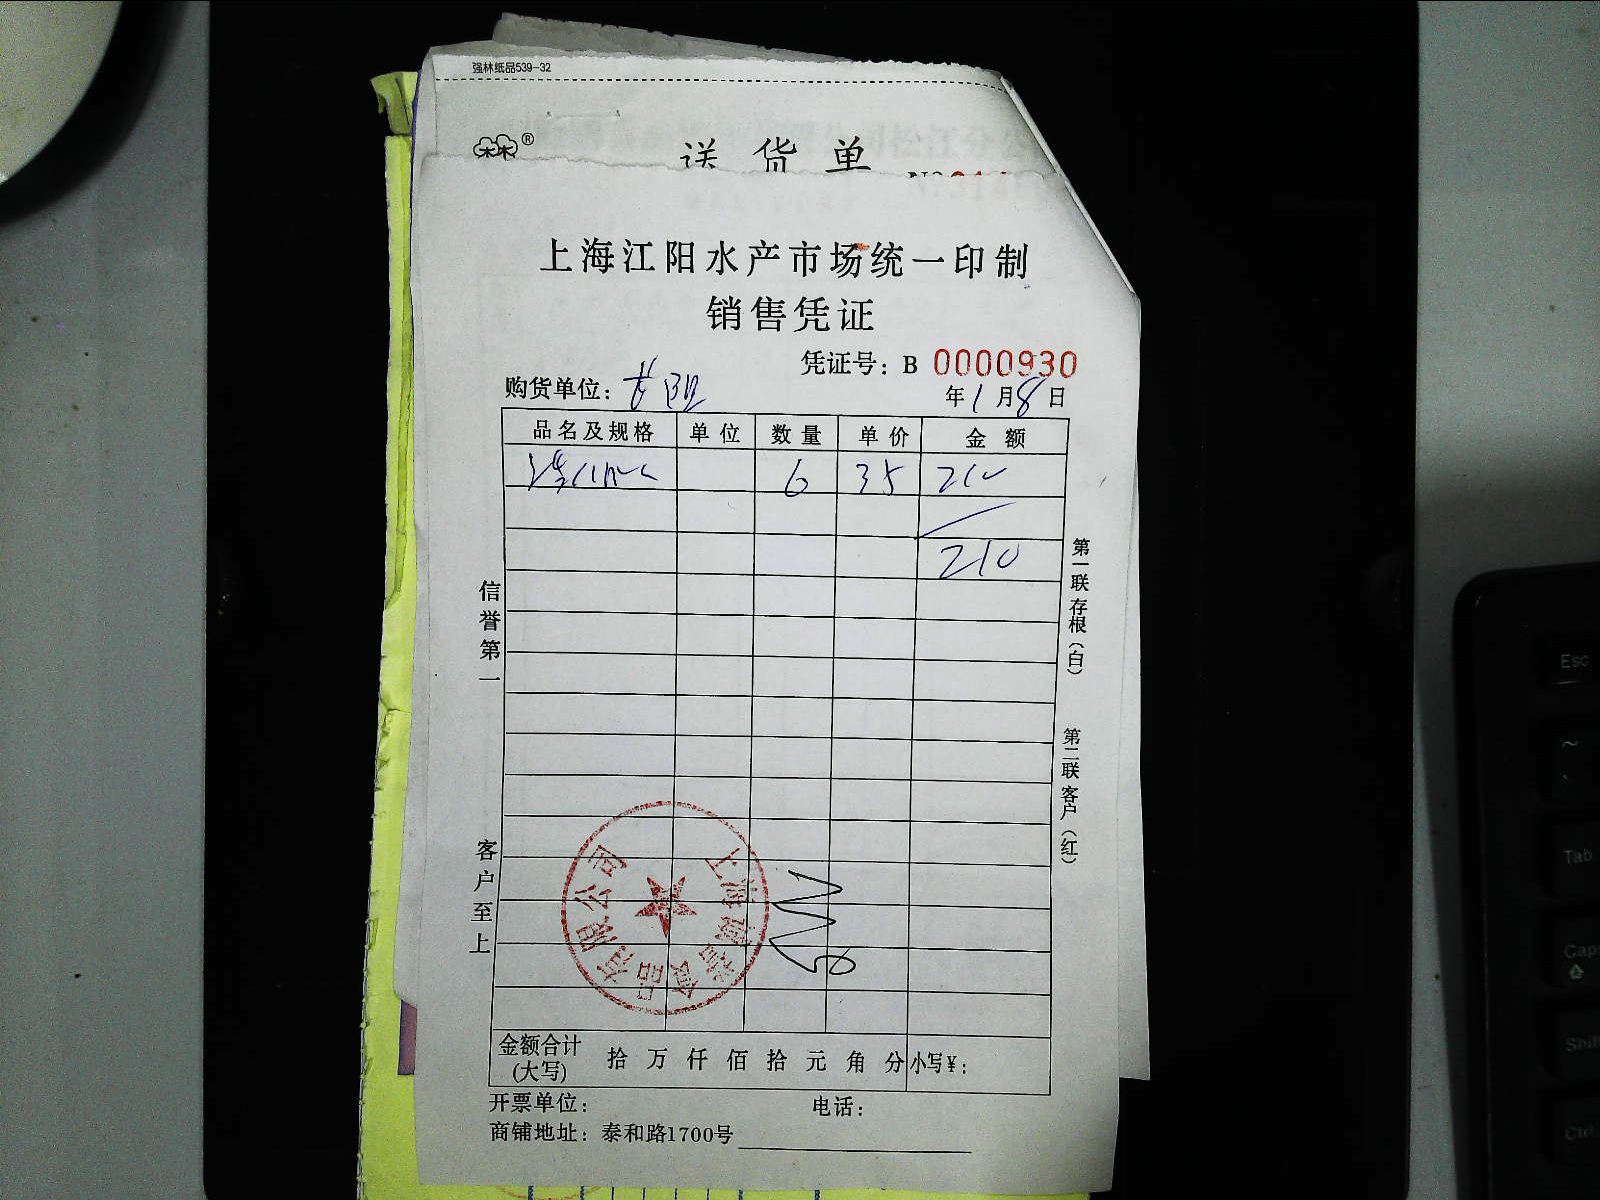 强林纸品539-32
林林®
送货单
上海江阳水产市场统一印制
销售凭证
凭证号：B 0000930
购货单位：
年1月8日
品名及规格 单位 数量 单价 金额
6 35 210
210
信誉第一
客户至上
第一联存根（白）
第二联客户（红）
金额合计(大写) 拾 万 仟 佰 拾 元 角 分 小写¥：
开票单位： 电话：
商铺地址：泰和路1700号
Esc
~
Tab
Caps
Shift
Ctrl